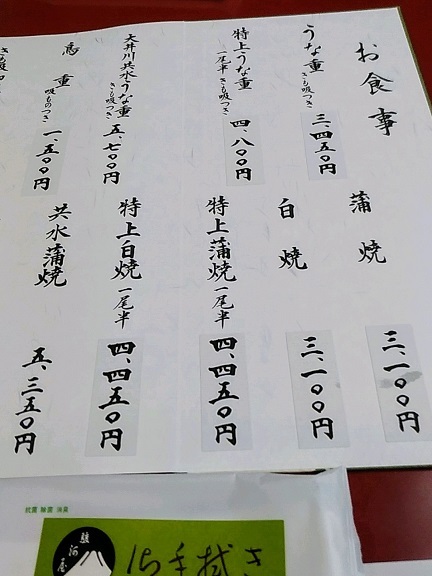 お食事
うな重
きも吸つき
三、四五〇円
特上うな重
一尾半 きも吸つき
四、八〇〇円
大井川共水うな重
きも吸つき
五、七〇〇円
鳥重
吸ものつき
一、五〇〇円
蒲焼
三、一〇〇円
白焼
三、一〇〇円
特上蒲焼 一尾半
四、四五〇円
特上白焼 一尾半
四、四五〇円
共水蒲焼
五、三五〇円
抗菌 除菌 消臭
駿河屋
御手拭き